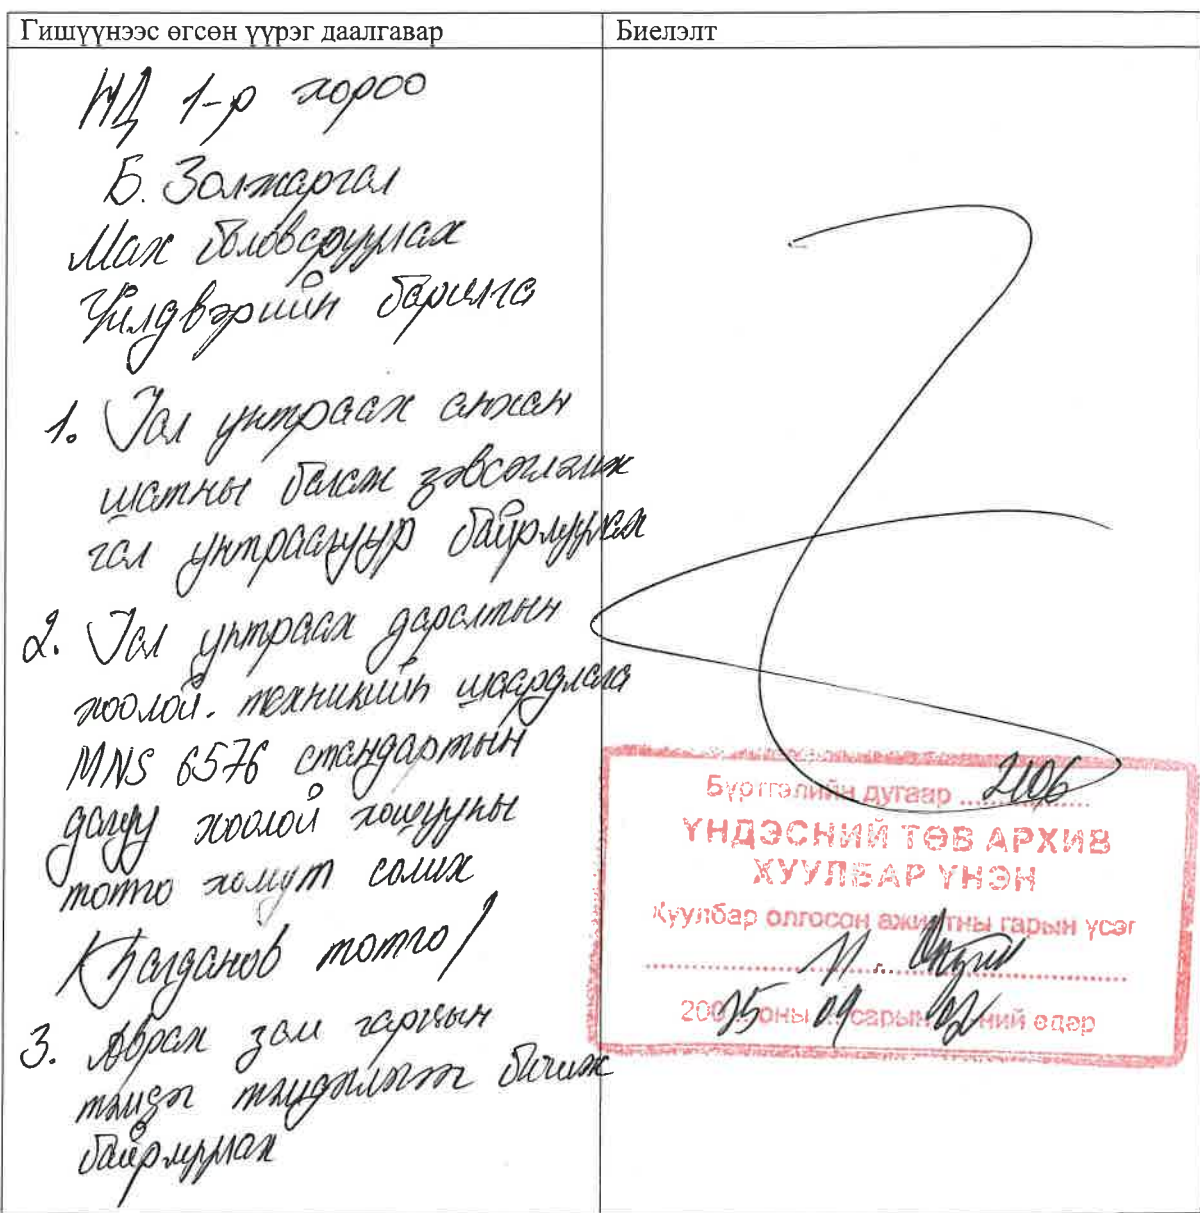 Гишүүнээс өгсөн үүрэг даалгавар
Биелэлт
1-р хороо
Б. Золжаргал
Мах боловсруулах
Үйлдвэрийн барилга
1. Гал унтраах анхан
шатны багаж зэвсэглэлж
гал унтраагуур байрлуулах
2. Гал унтраах даралтын
хоолой. техникийн шаардлага
MNS 6576 стандартын
дагуу хоолой хошууны
толгo хомут солих
Богданов толго/
3. Аврах зам гарцын
тэмдэг тэмдэглэгээг бичиж
байрлуулах
Бүртгэлийн дугаар 2106
ҮНДЭСНИЙ ТӨВ АРХИВ
ХУУЛБАР ҮНЭН
Хуулбар олгосон ажилтны гарын үсэг
2025 оны 09 сарын 02 ний өдөр